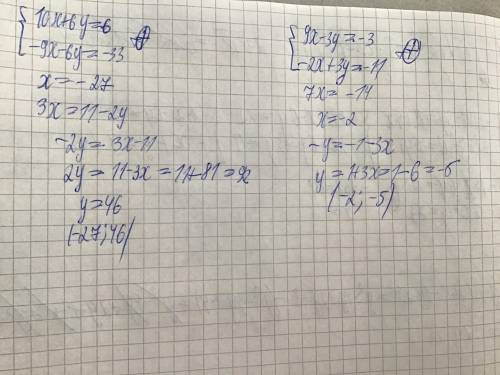 10x+6y=6
-9x-6y=-33 +
x=-27
3x=11-2y
-2y=3x-11
2y=11-3x=11+81=92
y=46
(-27;46)
9x-3y=-3
-2x+3y=-11 +
7x=-14
x=-2
-y=-1-3x
y=1+3x=1-6=-5
(-2;-5)